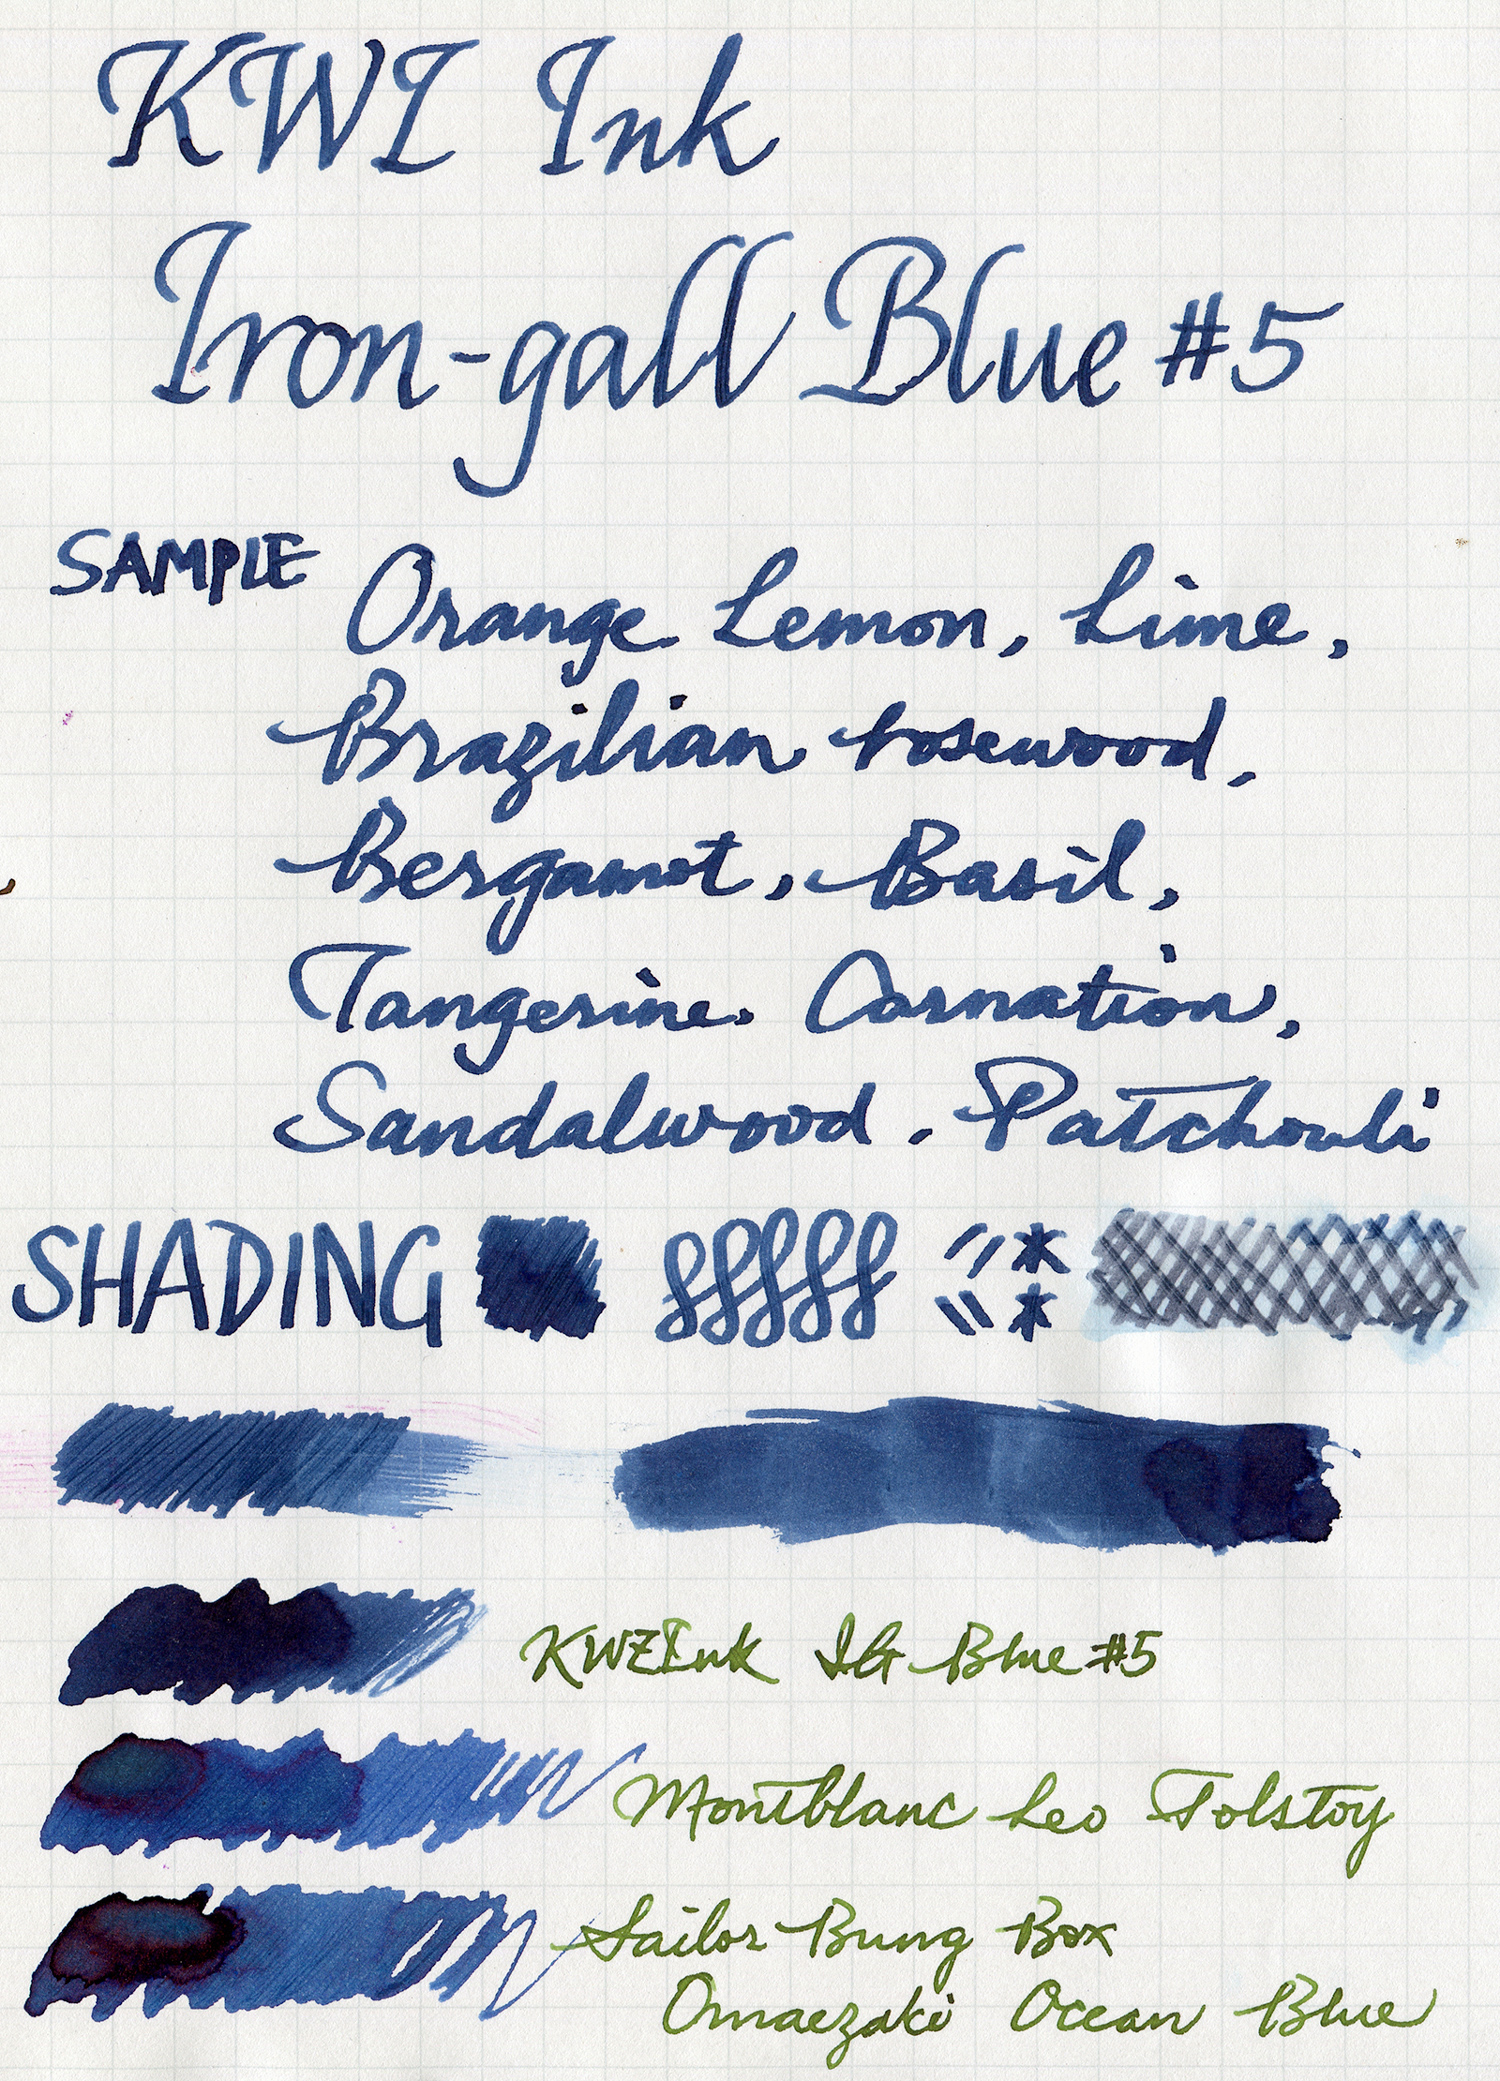 KWZ Ink
Iron-gall Blue #5
SAMPLE
Orange Lemon, Lime,
Brazilian rosewood,
Bergamot, Basil,
Tangerine. Carnation,
Sandalwood. Patchouli
SHADING
KWZInk IG Blue #5
Montblanc Leo Tolstoy
Sailor Bung Box
Omaezaki Ocean Blue